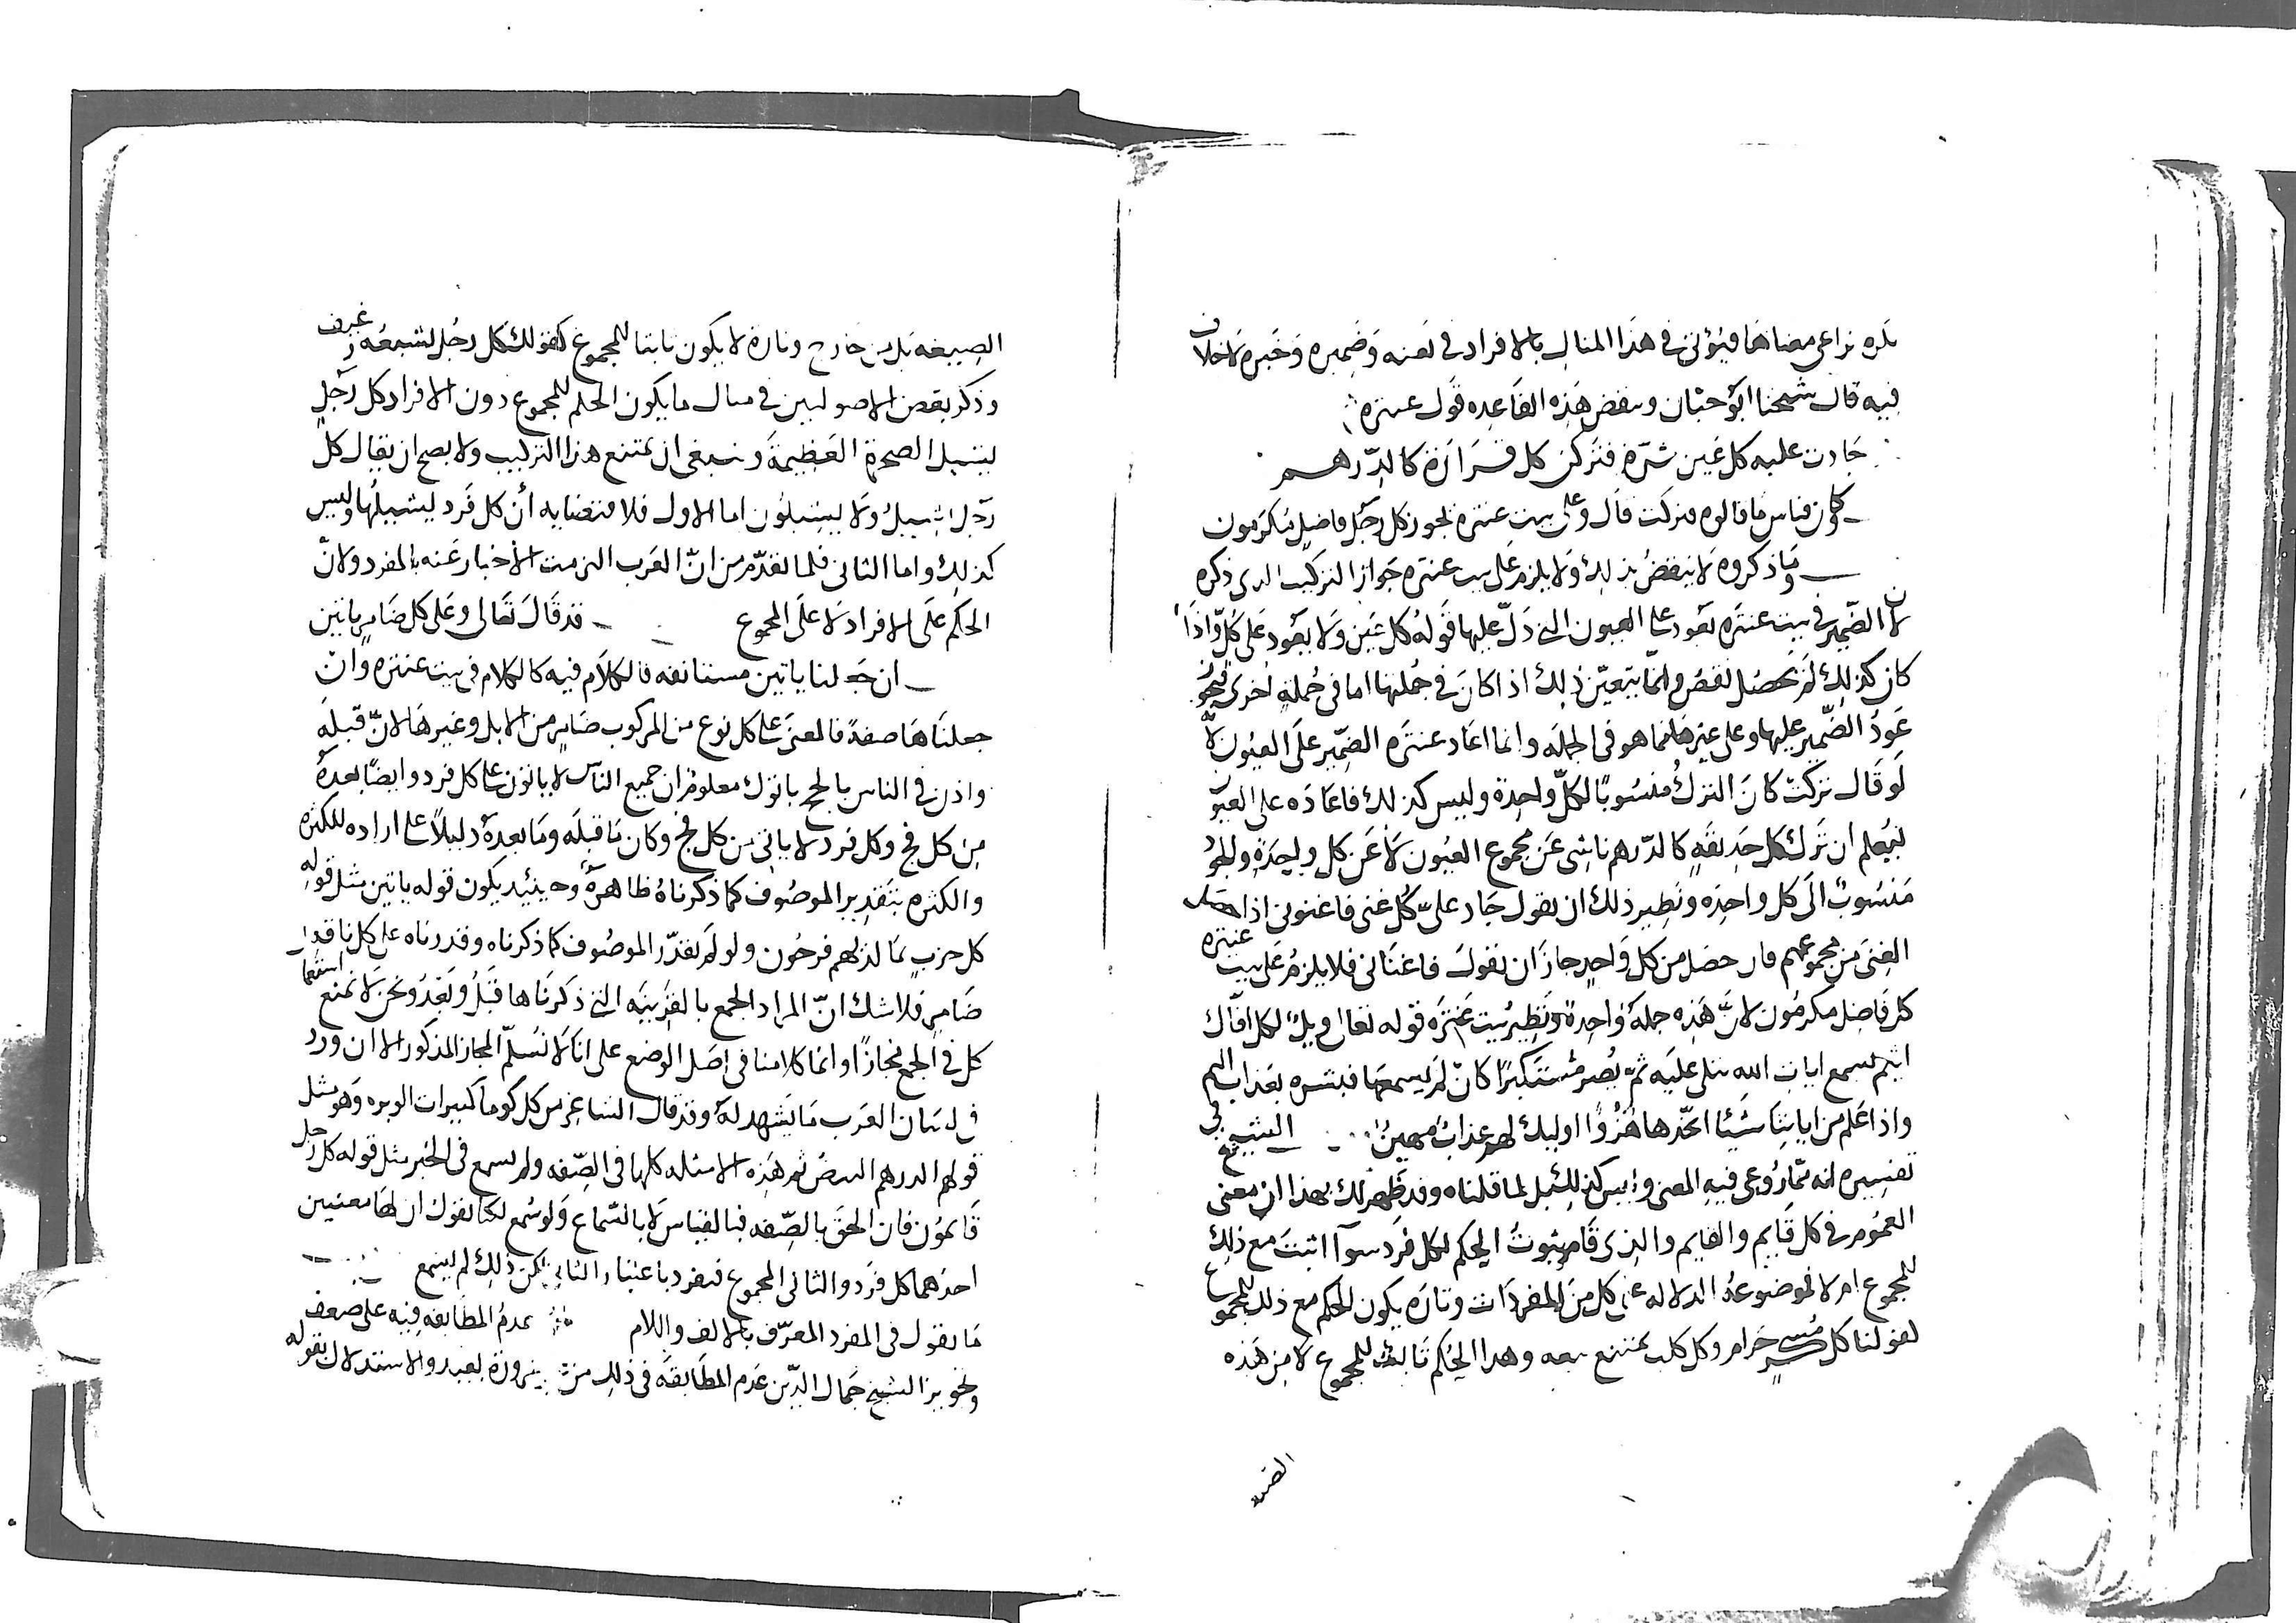 نكره نراعى معناها فيؤتى فى هذا المثال بالافراد فى نعته وضميره وخبره لا خلاف
فيه قال شيخنا ابو حيان وينقض هذه القاعده قول عنتره
جادت عليه كل عين ثرة فتركن كل قرارة كالدرهم
وكان قياس ما قالوه تركت قال وعلى بيت عنتره يجوز كل رجل فاضل مكرمون
وما ذكروه لا ينقض بذلك ولا يلزم على بيت عنتره جواز التركيب الذى ذكره
لان الضمير فى بيت عنتره يعود على العيون التى دل عليها قوله كل عين ولا يعود على كل واذا
كان كذلك لم يحصل نقض وانما يتعين ذلك اذا كان فى جملتها اما فى جملة اخرى فيجوز
عود الضمير عليها وعلى غيرها مما هو فى الجمله وانما اعاد عنتره الضمير على العيون لانه
لو قال تركت كان الترك منسوبا لكل واحدة وليس كذلك فاعاده على العيون
ليعلم ان ترك كل حديقه كالدرهم ناشى عن مجموع العيون لا عن كل واحدة والجود
منسوب الى كل واحده ونظير ذلك ان يقول جاد على كل غنى فاغنونى اذا حصل
الغنى من مجموعهم فان حصل من كل واحد جاز ان تقول فاغنانى فلا يلزم على بيت عنتره
كل فاضل مكرمون لان هذه جملة واحدة ونظير بيت عنتره قوله تعالى ويل لكل افاك
اثيم يسمع ايات الله تتلى عليه ثم يصر مستكبرا كان لم يسمعها فبشره بعذاب اليم
واذا علم من اياتنا شيئا اتخذها هزوا اوليك لهم عذاب مهين الشيخ فى
تفسيره انه مما روعى فيه المعنى وليس كذلك بل لما قلناه وقد ظهر لك بهذا ان معنى
العموم فى كل قايم والقايم والذى قام ثبوت الحكم لكل فرد سوآ اثبت مع ذلك
للمجموع ام لا فموضوعه الدلاله على كل من المفردات وتارة يكون الحكم مع ذلك للمجموع
كقولنا كل مسكر حرام وكل كلب يمتنع بيعه وهذا الحكم ثابت للمجموع لا من هذه
الصيغه
الصيغه بل من خارج وتارة لا يكون ثابتا للمجموع كقولك كل رجل يشبعه رغيف
وذكر بعض الاصوليين فى مثال ما يكون الحكم للمجموع دون الافراد كل رجل
يشيل الصخرة العظيمة وينبغى ان يمتنع هذا التركيب ولا يصح ان يقال كل
رجل يشيل ولا يشيلون اما الاول فلاقتضايه أن كل فرد يشيلها وليس
كذلك واما الثانى فلما تقدم من ان العرب التزمت الأخبار عنه بالمفرد ولان
الحكم على الافراد لا على المجموع قد قال تعالى وعلى كل ضامر ياتين
ان جعلنا ياتين مستانفه فالكلام فيه كالكلام فى بيت عنتره وان
جعلناها صفة فالمعنى على كل نوع من المركوب ضامر من الابل وغيرها لان قبله
واذن فى الناس بالحج ياتوك معلوم ان جميع الناس لا ياتون على كل فرد وايضا بعده
من كل فج وكل فرد لا ياتى من كل فج وكان ما قبله وما بعده دليلا على اراده للكثره
والكثره بتقدير الموصوف كما ذكرناه ظاهرة وحينئذ يكون قوله ياتين مثل قوله
كل حزب بما لديهم فرحون ولو لم يقدر الموصوف كما ذكرناه وقدرناه على كل ناقه
ضامر فلا شك ان المراد الجمع بالقرينه التى ذكرناها قبل وبعد ونحن لا نمنع استعمال
كل فى الجمع مجازا وانما كلامنا فى اصل الوضع على انا لا نسلم المجاز المذكور الا ان ورد
فى لسان العرب ما يشهد له وقد قال الشاعر من كل كوما كبيرات الوبره وهو مثل
قولهم الدرهم البيض ثم هذه الامثله كلها فى الصفه ولم يسمع فى الخبر مثل قوله كل رجل
قايمون فان الحق بالصفه فبالقياس لا بالسماع ولو سمع لكنا نقول ان لها معنيين
احدهما كل فرد والثانى المجموع فيفرد باعتبار الثانى لكن ذلك لم يسمع
ما نقول فى المفرد المعرف بالالف واللام عدم المطابقه فيه على ضعف
وتجويز الشيخ جمال الدين عدم المطابقه فى ذلك من غير ضرورة بعيد والاستدلال بقوله